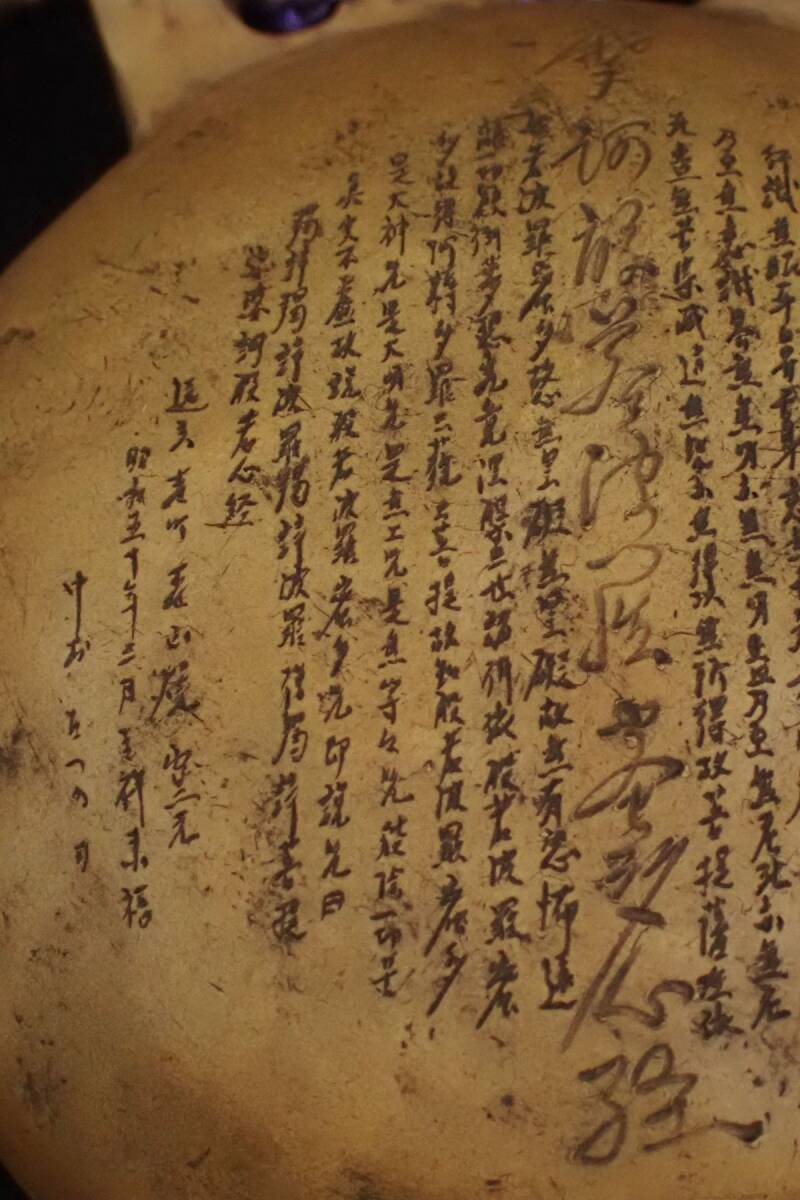 行識無眼耳鼻舌身意無
乃至無意識界無無明亦無無明尽乃至無老死亦無老
死盡無苦集滅道無智亦無得以無所得故菩提薩埵依
摩訶般若波羅蜜多心経
般若波羅蜜多故心無罣礙無罣礙故無有恐怖遠
離一切顛倒夢想究竟涅槃三世諸佛依般若波羅蜜
多故得阿耨多羅三藐三菩提故知般若波羅蜜多
是大神咒是大明咒是無上咒是無等等咒能除一切苦
真実不虚故説般若波羅蜜多咒即説咒曰
羯諦羯諦波羅羯諦波羅僧羯諦菩提
娑婆訶般若心経
昭和五十年三月吉祥来福